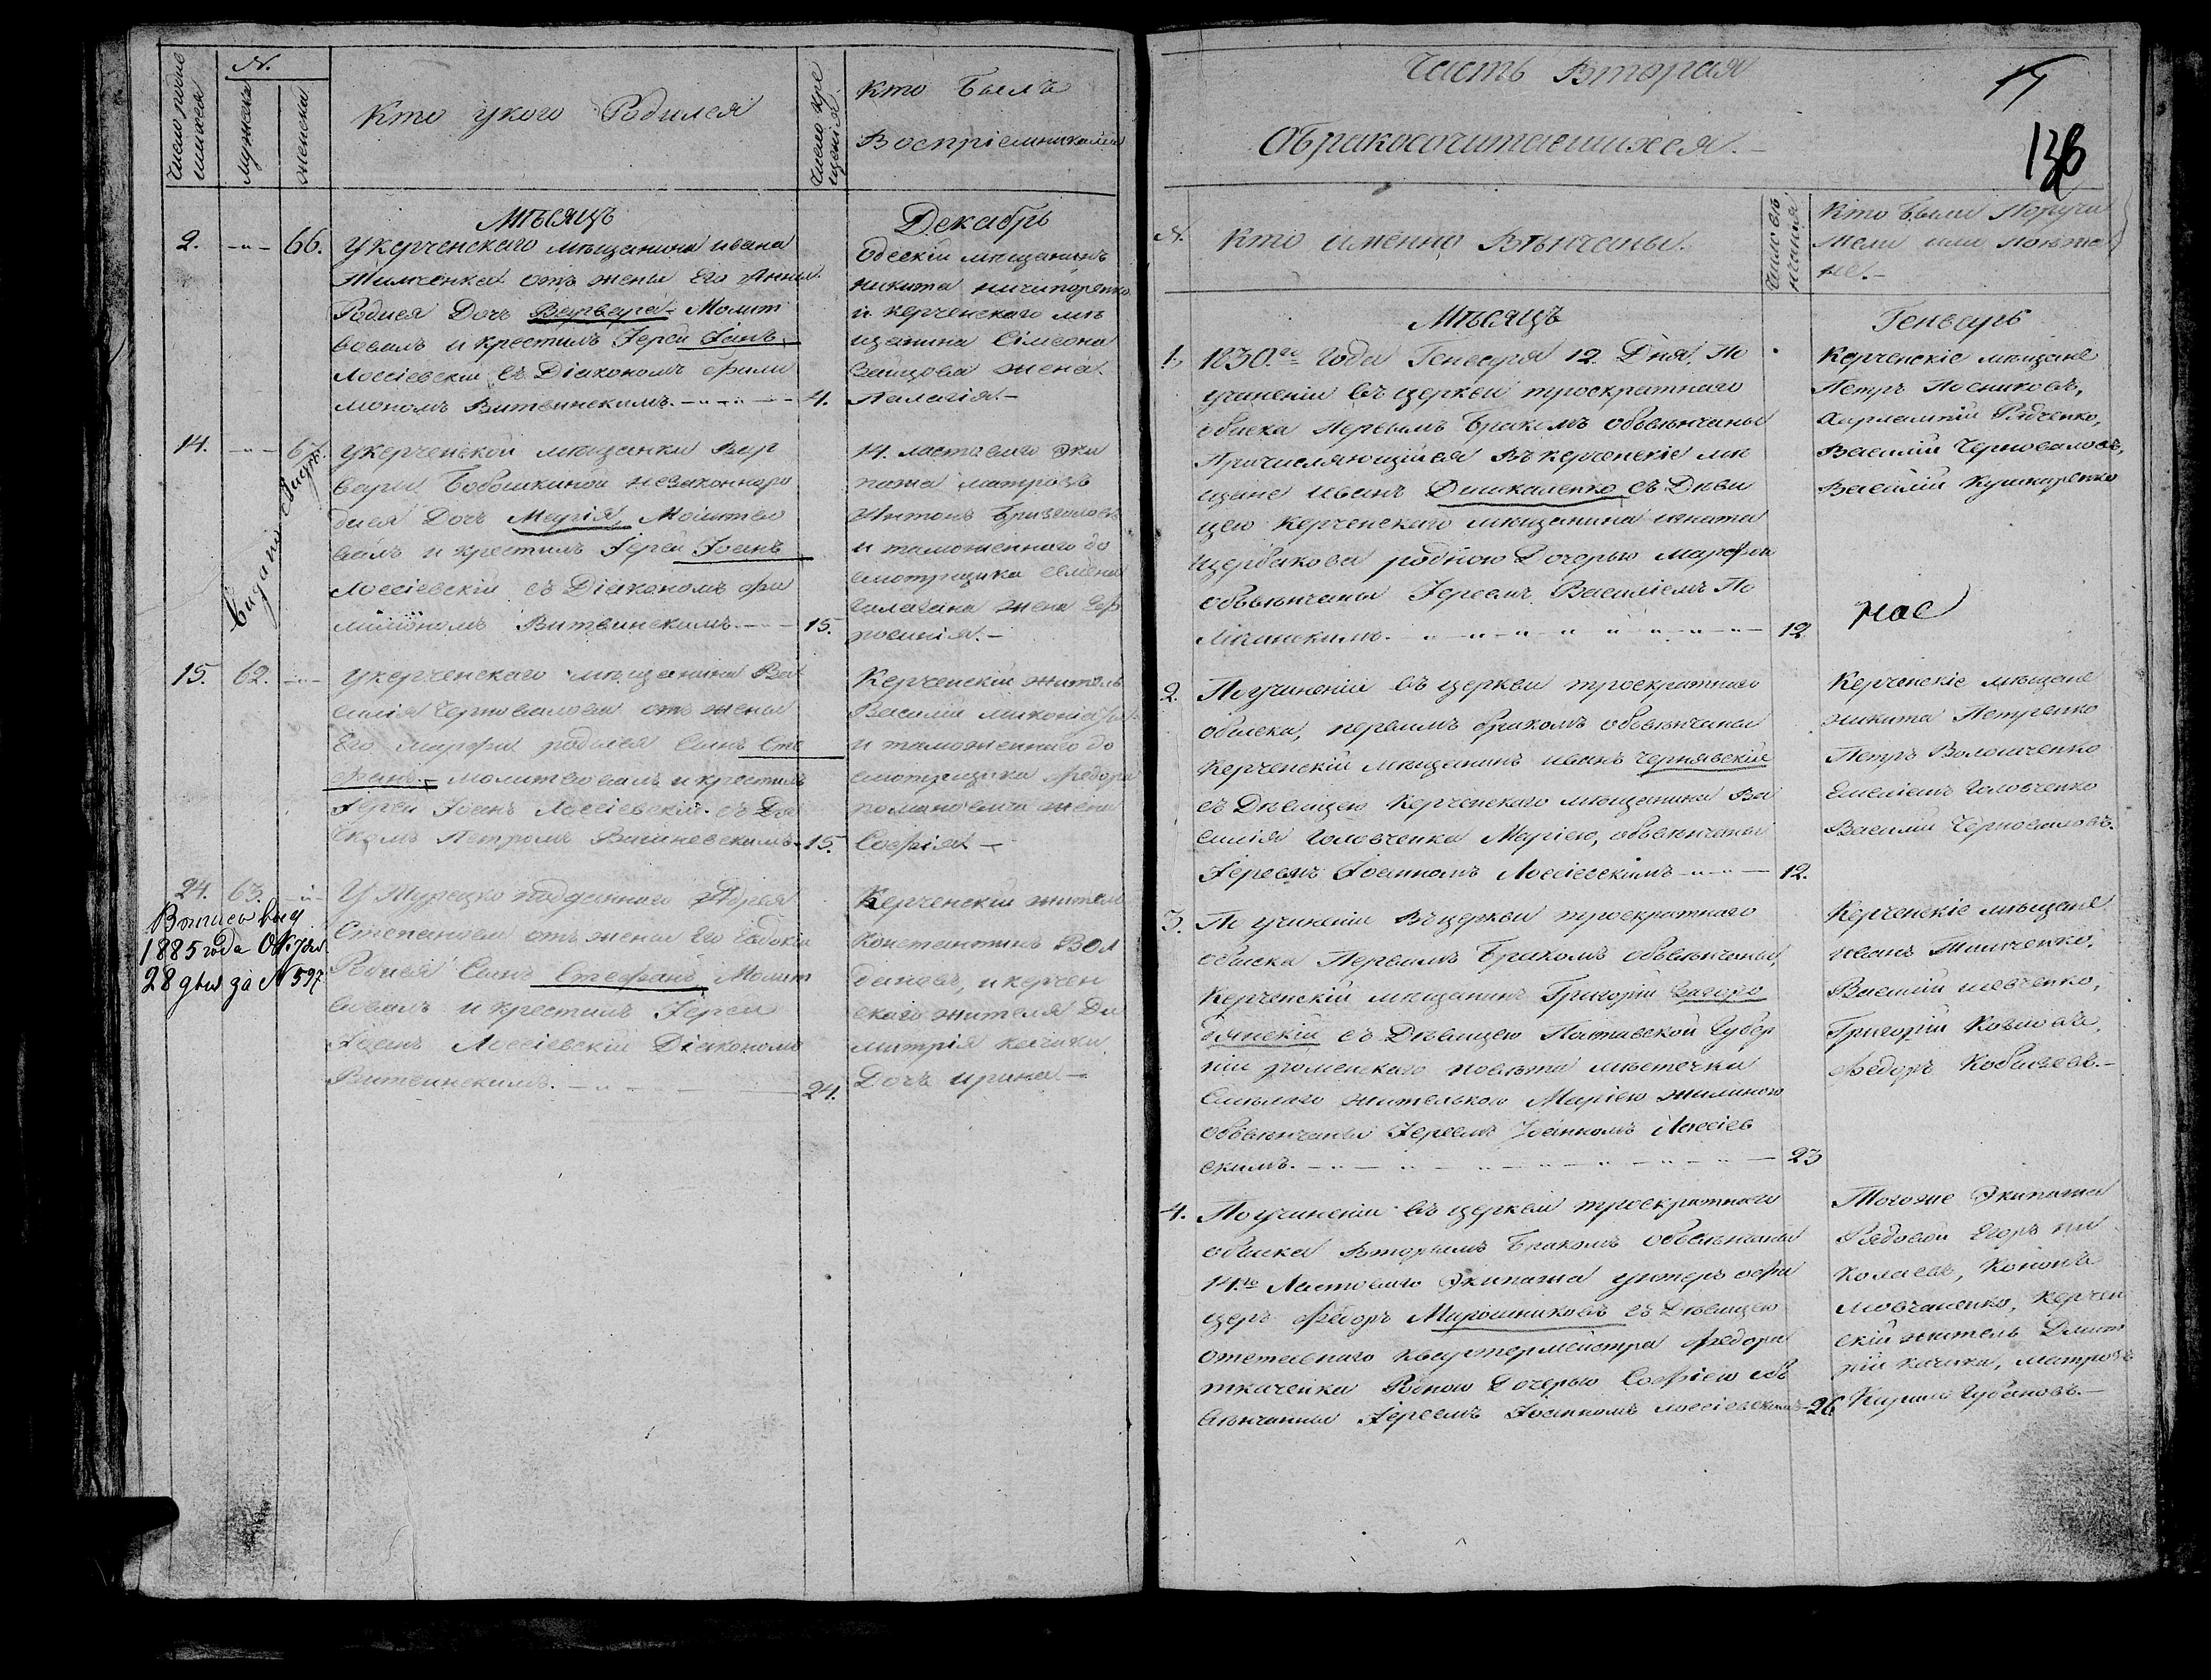 Число родив
шихся
N.
мужеска
женска
Кто укого Родился
Число кре
щенія
Кто Былъ
Воспріемниками
Мѣсяцъ
Декабрь
2. 66. Укерченскаго мѣщанина Ивана
Тимченка отъ жены Его Анны
Родися Дочь Варвара. Молит
вовалъ и крестилъ Іерей Іоанъ
Лоссіевскій съ Діакономъ Фили
мономъ Витвинскимъ. 4.
Одесскій мѣщанинъ
никита ничипоренко
и керченскаго мѣ
щанина Сімеона
Зайцова жена
Палагія.
14. 67. Укерченской мѣщанки Вар
вары Бобошкиной незаконноро
дися Дочь Марія, Молитво
валъ и крестилъ Іерей Іоанъ
Лоссіевскій съ Діакономъ Фи
лимономъ Витвинскимъ. 15.
14. ластоваго эки
пажа матросъ
Антонъ
и таможеннаго до
смотрщика Семена
жена Еф
росинія.
15. 62. Укерченскаго мѣщанина Ва
силія Черновалова отъ жены
Его Марфы родился Сынъ Сте
фанъ. молитвовалъ и крестилъ
Іерей Іоанъ Лоссіевскій съ Дья
чкомъ Петромъ Вишневскимъ. 15.
Керченскій житель
Василій
и таможеннаго до
смотрщика Федора
жена
Софія.
24. 63. У Турецко подданного Андрея
Степанова отъ жены Его Евдокіи
Родися Сынъ Стефанъ, Молит
вовалъ и крестилъ Іерей
Іоанъ Лоссіевскій Діакономъ
Витвинскимъ. 24.
1885 года
28 дня за N 597
Керченскій житель
Константинъ Вол
дановъ, и керчен
скаго жителя Ди
митрія качики
Дочь ирина.
Часть Вторая
Обракосочитавшихся.
N.
Кто имѣнно Вѣнчаны.
Число вѣ
нчанія
Кто были Поручи
тели или поѣзжа
не.
Мѣсяцъ
Генварь
1. 1830.го Года Генваря 12 Дня, По
учиненіи въ церкви троекратнаго
обыска первымъ бракомъ обвѣнчаны
Причисляющійся Въ керченскіе мѣ
щане Иванъ Дишкаленко съ Дѣви
цею керченскаго мѣщанина игната
Щербакова родною Дочерью Марфы
обвѣнчаны Іереемъ Василіемъ По
12.
Керченскіе мѣщане
Петръ Посниковъ,
Харлампій Рядченко,
Василій Черноваловъ,
Василій Кушнаренко
2. Поучиненіи въ церкви троекратнаго
обыска, первымъ бракомъ обвѣнчаны
Керченскій мѣщанинъ иванъ Чернявскій
съ Дѣвицею Керченскаго мѣщанина Ва
силія Головченка Маріею, обвѣнчаны
Іереемъ Іоанномъ Лоссіевскимъ 12.
Керченскіе мѣщане
никита Петренко
Петръ Волошченко
Емеліянъ Головченко
Василій Черноваловъ.
3. По учиненіи Въ церкви троекратнаго
обыска Первымъ бракомъ обвѣнчаны,
Керченскій мѣщанинъ Григорій Загоро
дянскій съ Дѣвицею Полтавской Губер
ніи роменскаго повѣта мѣстечка
Смѣлаго жителькою Маріею
обвѣнчаны Іереемъ Іоанномъ Лоссіев
скимъ. 23
Керченскіе мѣщане
иванъ Тимченко,
Василій шевченко,
Григорій
Федоръ Кобызевъ.
4. Поучиненіи въ церкви троекратнаго
обыска Вторымъ бракомъ обвѣнчаны
14.го Ластоваго Экипажа унтеръ офи
церъ Федоръ Мирошниковъ съ Дѣвицею
отставнаго квартермейстра Федора
ткаченка Родною Дочерью Софіею об
вѣнчанны Іереемъ Іоанномъ Лоссіевскимъ 26.
Тогоже Экипажа
Рядовой Егоръ ни
колаевъ, Кононъ
мовчаненко, керчен
скій житель Димит
рій качика, матросъ
Кирило Губановъ.